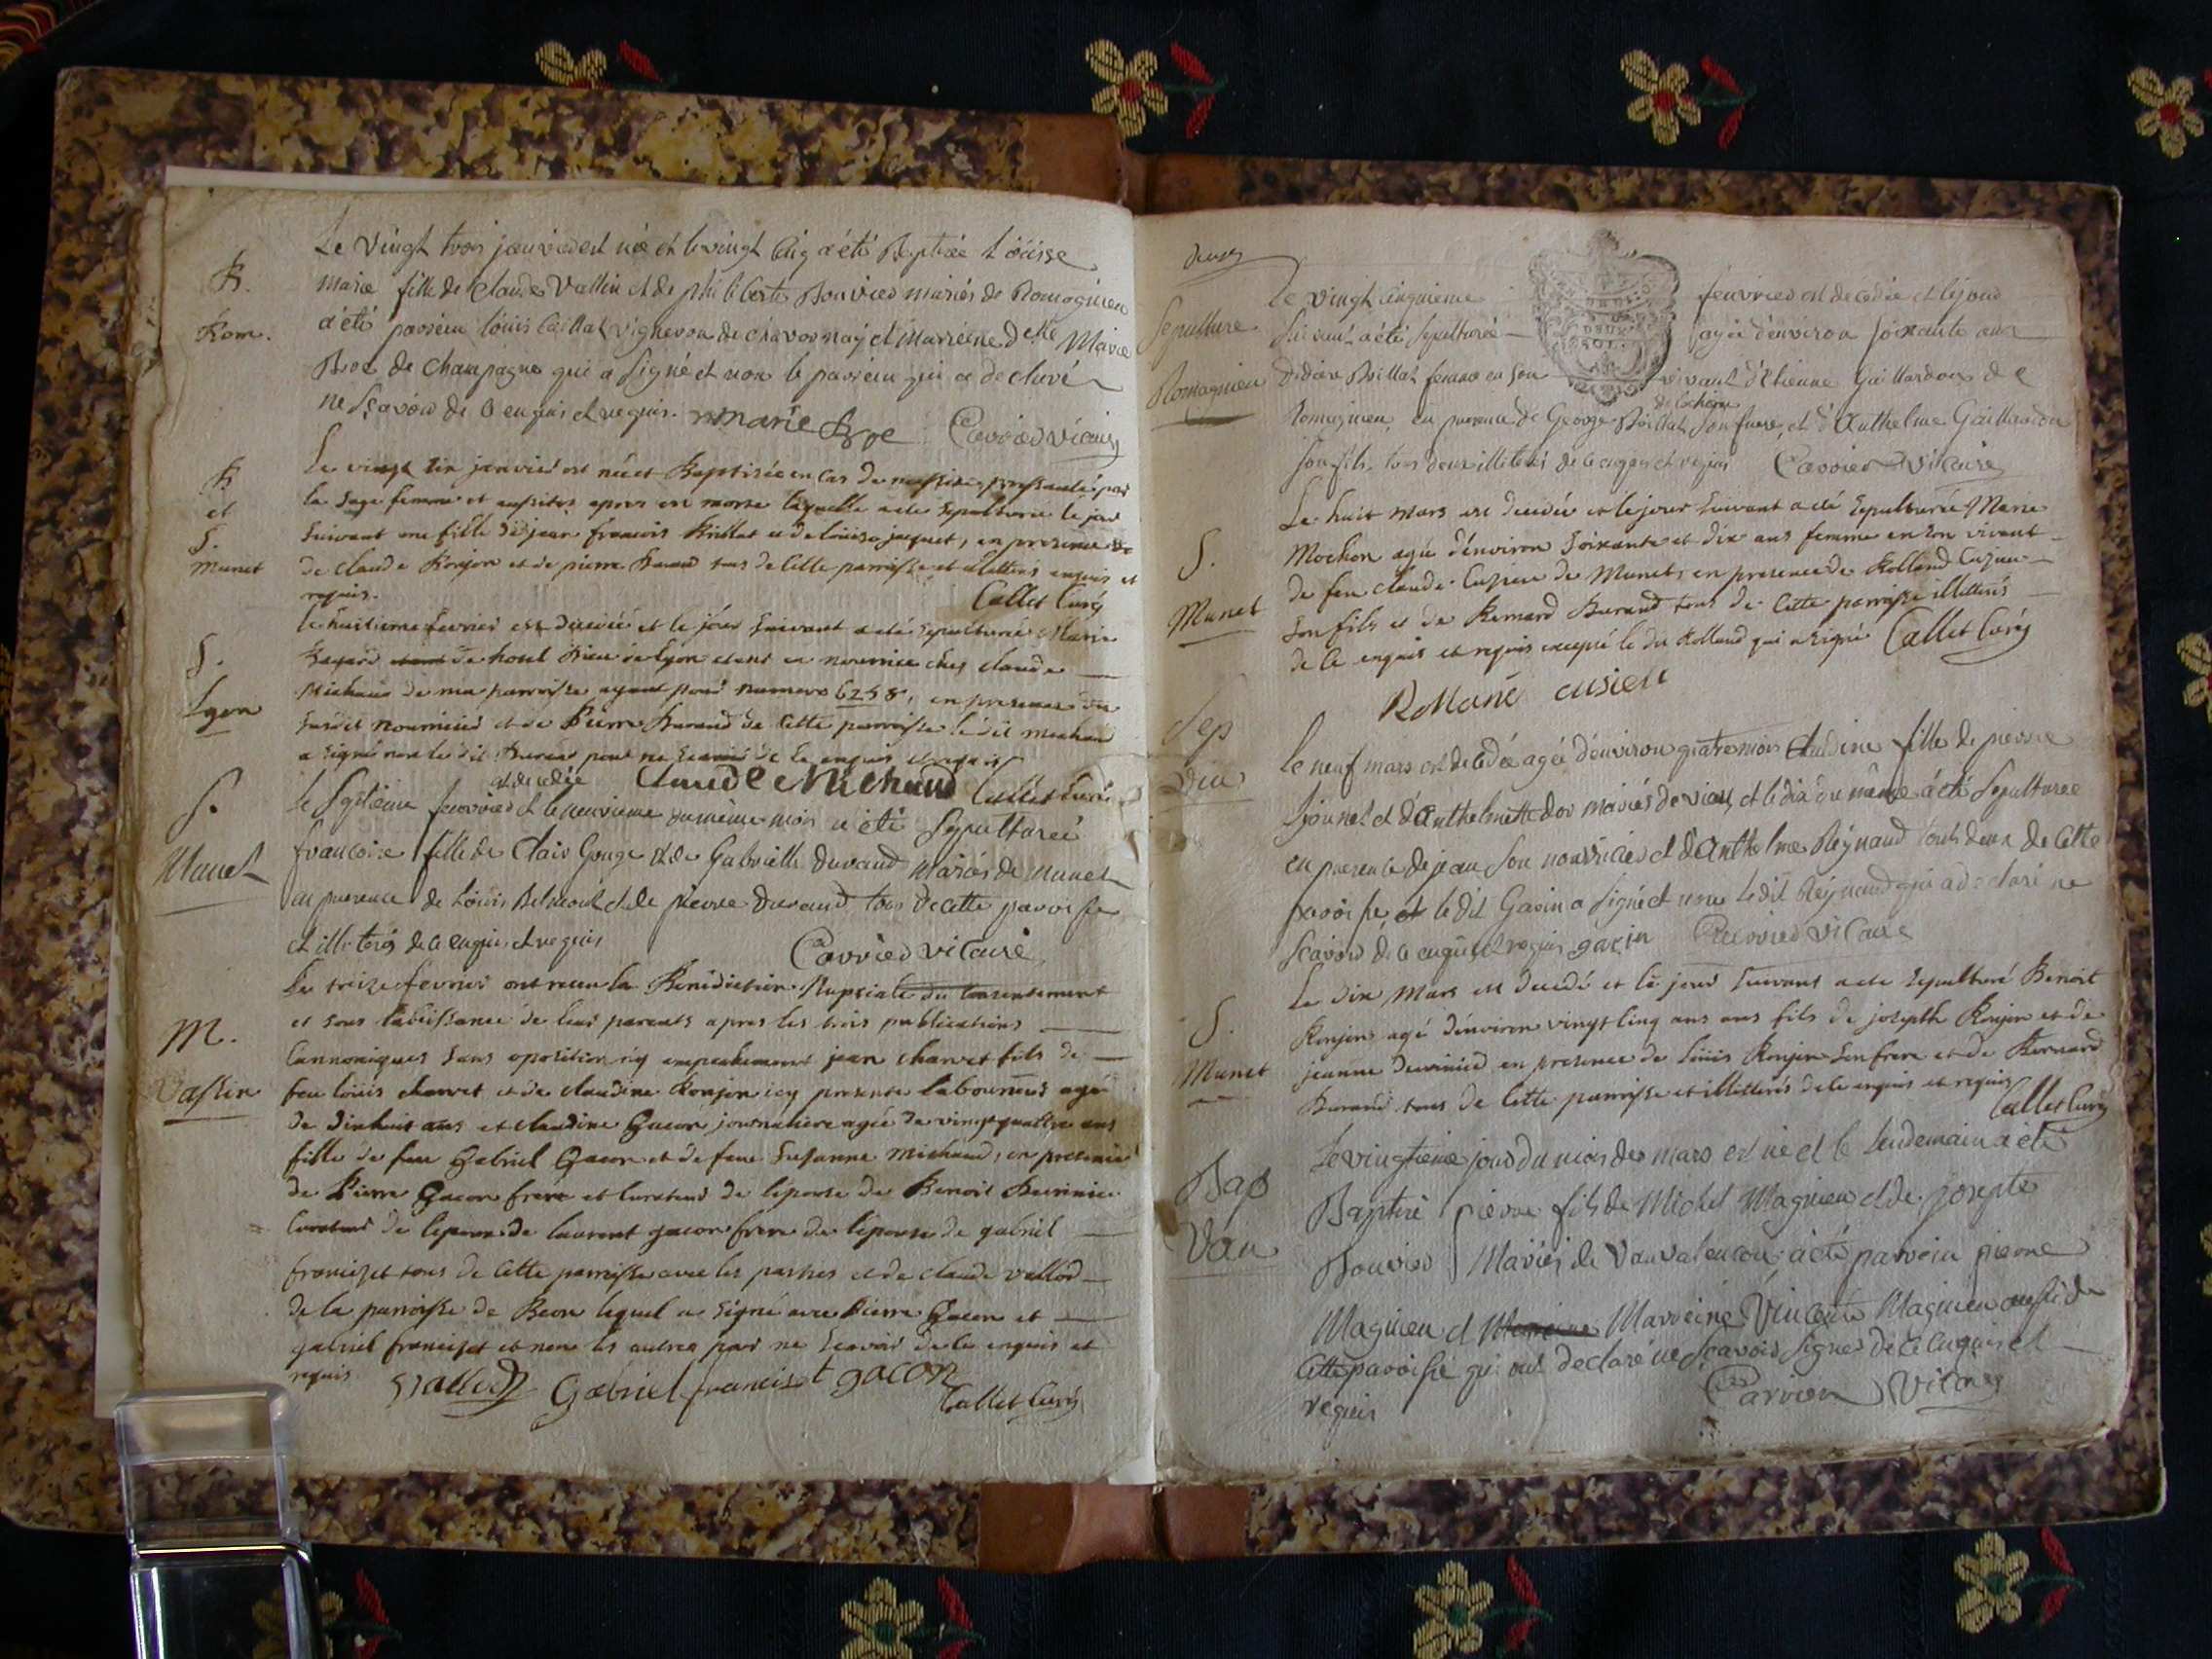 Le vingt trois janvier est née et le vingt cinq a été Baptisée Loüise
B.
marie fille de Claude Vallin et de philiberte Bouvier mariés de Romagnieu
Rom.
a été parrein loüis Caillat vigneron de chavornaÿ et marreine delle Marie
de Champagne qui a signé et non le parrein qui a declaré
ne sçavoir de ce enquis et requis. marie Carrier vicaire
Le vingt six janvier est née et Baptisée en cas de necessité pressante par
B
la sage femme et aussitot apres est morte laquelle a ete sepulturée le jour
et
suivant une fille de jean francois Brillat et de loüise jaquet, en presence
S.
Munet
de claude Konjon et de pierre Burand tous de cette parroisse et illettrés enquis et
requis. Callet Curé
le huitieme fevrier est decedée et le jour suivant a été sepulturée Marie
S.
de hotel Dieu de Lyon etant en nourrice chez claude
Lyon
Michaud de ma parroisse ayant pour numero 6258, en presence du
susdit nourricier et de Pierre Burand de cette parroisse le dit michaud
a signé non le dit Burand pour ne scavoir de ce enquis et requis
est decedée Claude Michaud Callet Curé
S.
le septieme fevrier et le neuvieme du même mois a été sepulturée
Munet
francoise fille de Clair Gouge et de Gabrielle Durand Mariés de Munet
en presence de Loüis et de pierre Durand tous de cette paroisse
et illiterés de ce enquis et requis Carrier vicaire
Le treize fevrier ont recu la Benediction Nuptiale du consentement
et sous l'abeissance de leur parents apres les trois publications
M.
Cannoniques sans oposition ny empechement jean charvet fils de
Vassin
feu loüis charvet et de claudine Konjon icy presente laboureur agé
de dixhuit ans et claudine Gacon journaliere agée de vingt quattre ans
fille de feu Gabriel Gacon et de feue Susanne michaud, en presence
de Pierre Gacon frere et curateur de l'epouse de Benoit
curateur de l'epoux de laurent gacon frere de l'epouse de gabriel
francizet tous de cette parroisse avec les parties et de claude vallod
de la parroisse de Beon lequel a signé avec Pierre Gacon et
gabriel francizet et non les autres pour ne scavoir de ce enquis et
requis vallod Gabriel francizet gacon
Callet Curé
deux
DEUX SOLS
Le vingt cinquieme fevrier est decedée et le jour
Sepulture
suivant a été sepulturée agée d'environ soixante ans
Romagnieu
Didiere Brillat femme en son vivant d'Etienne Gaillardon de
Romagnieu, en presence de George Brillat son frere, et d'Anthelme Gaillardon
son fils, tous deux illiterés de ce enquis et requis Carrier vicaire
Le huit mars est decedée et le jour suivant a été sepulturée Marie
S.
Mochon agée d'environ soixante et dix ans femme en son vivant
de feu claude Cusieu de Munet, en presence de Rolland Cusieu
Munet
son fils et de Bernard Burand tous de cette parroisse illettrés
de ce enquis et requis excepté le dit Rolland qui a signé Callet Curé
Rollane cusieu
Sep
le neuf mars est decedée agée d'environ quatre mois Claudine fille de pierre
et d'Anthelmette mariés de et le dix du même a été sepulturée
en presence de jean son nourricier et d'Anthelme Reÿnaud tout deux de cette
paroisse, et le dit Gacin a signé et non le dit Reÿnaud qui a declaré ne
scavoir de ce enquis et requis gacin Carrier vicaire
Le dix Mars est decedé et le jour suivant a ete sepulturé Benoit
S.
Konjon agé d'environ vingt cinq ans ans fils de joseph Konjon et de
Munet
jeanne en presence de loüis Konjon son frere et de Bernard
Burand tous de cette parroisse et illettrés de ce enquis et requis
Callet Curé
Le vingtieme jour du mois de mars est né et le lendemain a été
Bap
Baptisé pierre fils de Michel Magnieu et de josepte
Vau
Bouvier Mariés de a été parrein pierre
Magnieu et Marreine Vincente Magnieu aussi de
cette paroisse qui ont declaré ne scavoir signer de ce enquis et
requis Carrier Vicaire